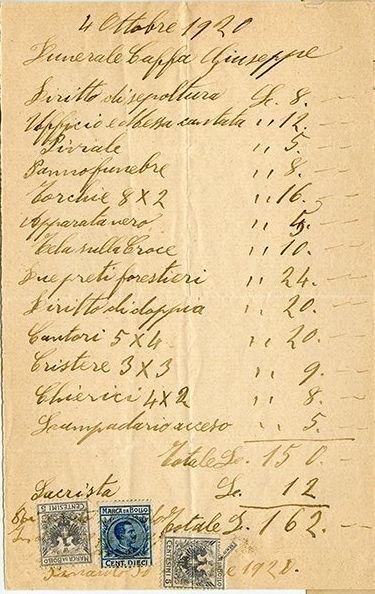 4 Ottobre 1920
Funerale Caffa Giuseppe
Diritto di sepoltura L. 8. —
Ufficio e Messa cantata " 12. —
Piviale " 5. —
Panno funebre " 8. —
Torchie 8 X 2 " 16. —
Apparata nero " 5. —
Tela sulla Croce " 10. —
Due preti forestieri " 24. —
Diritto di doppia " 20. —
Cantori 5 X 4 " 20. —
Cristere 3 X 3 " 9. —
Chierici 4 X 2 " 8. —
Lampadario acceso " 5. —
Totale L. 150 —
Sacrista L. 12
Totale L. 162. —
MARCA DA BOLLO
CENT. DIECI
MARCA DA BOLLO
CENTESIMI 5
CENTESIMI 5